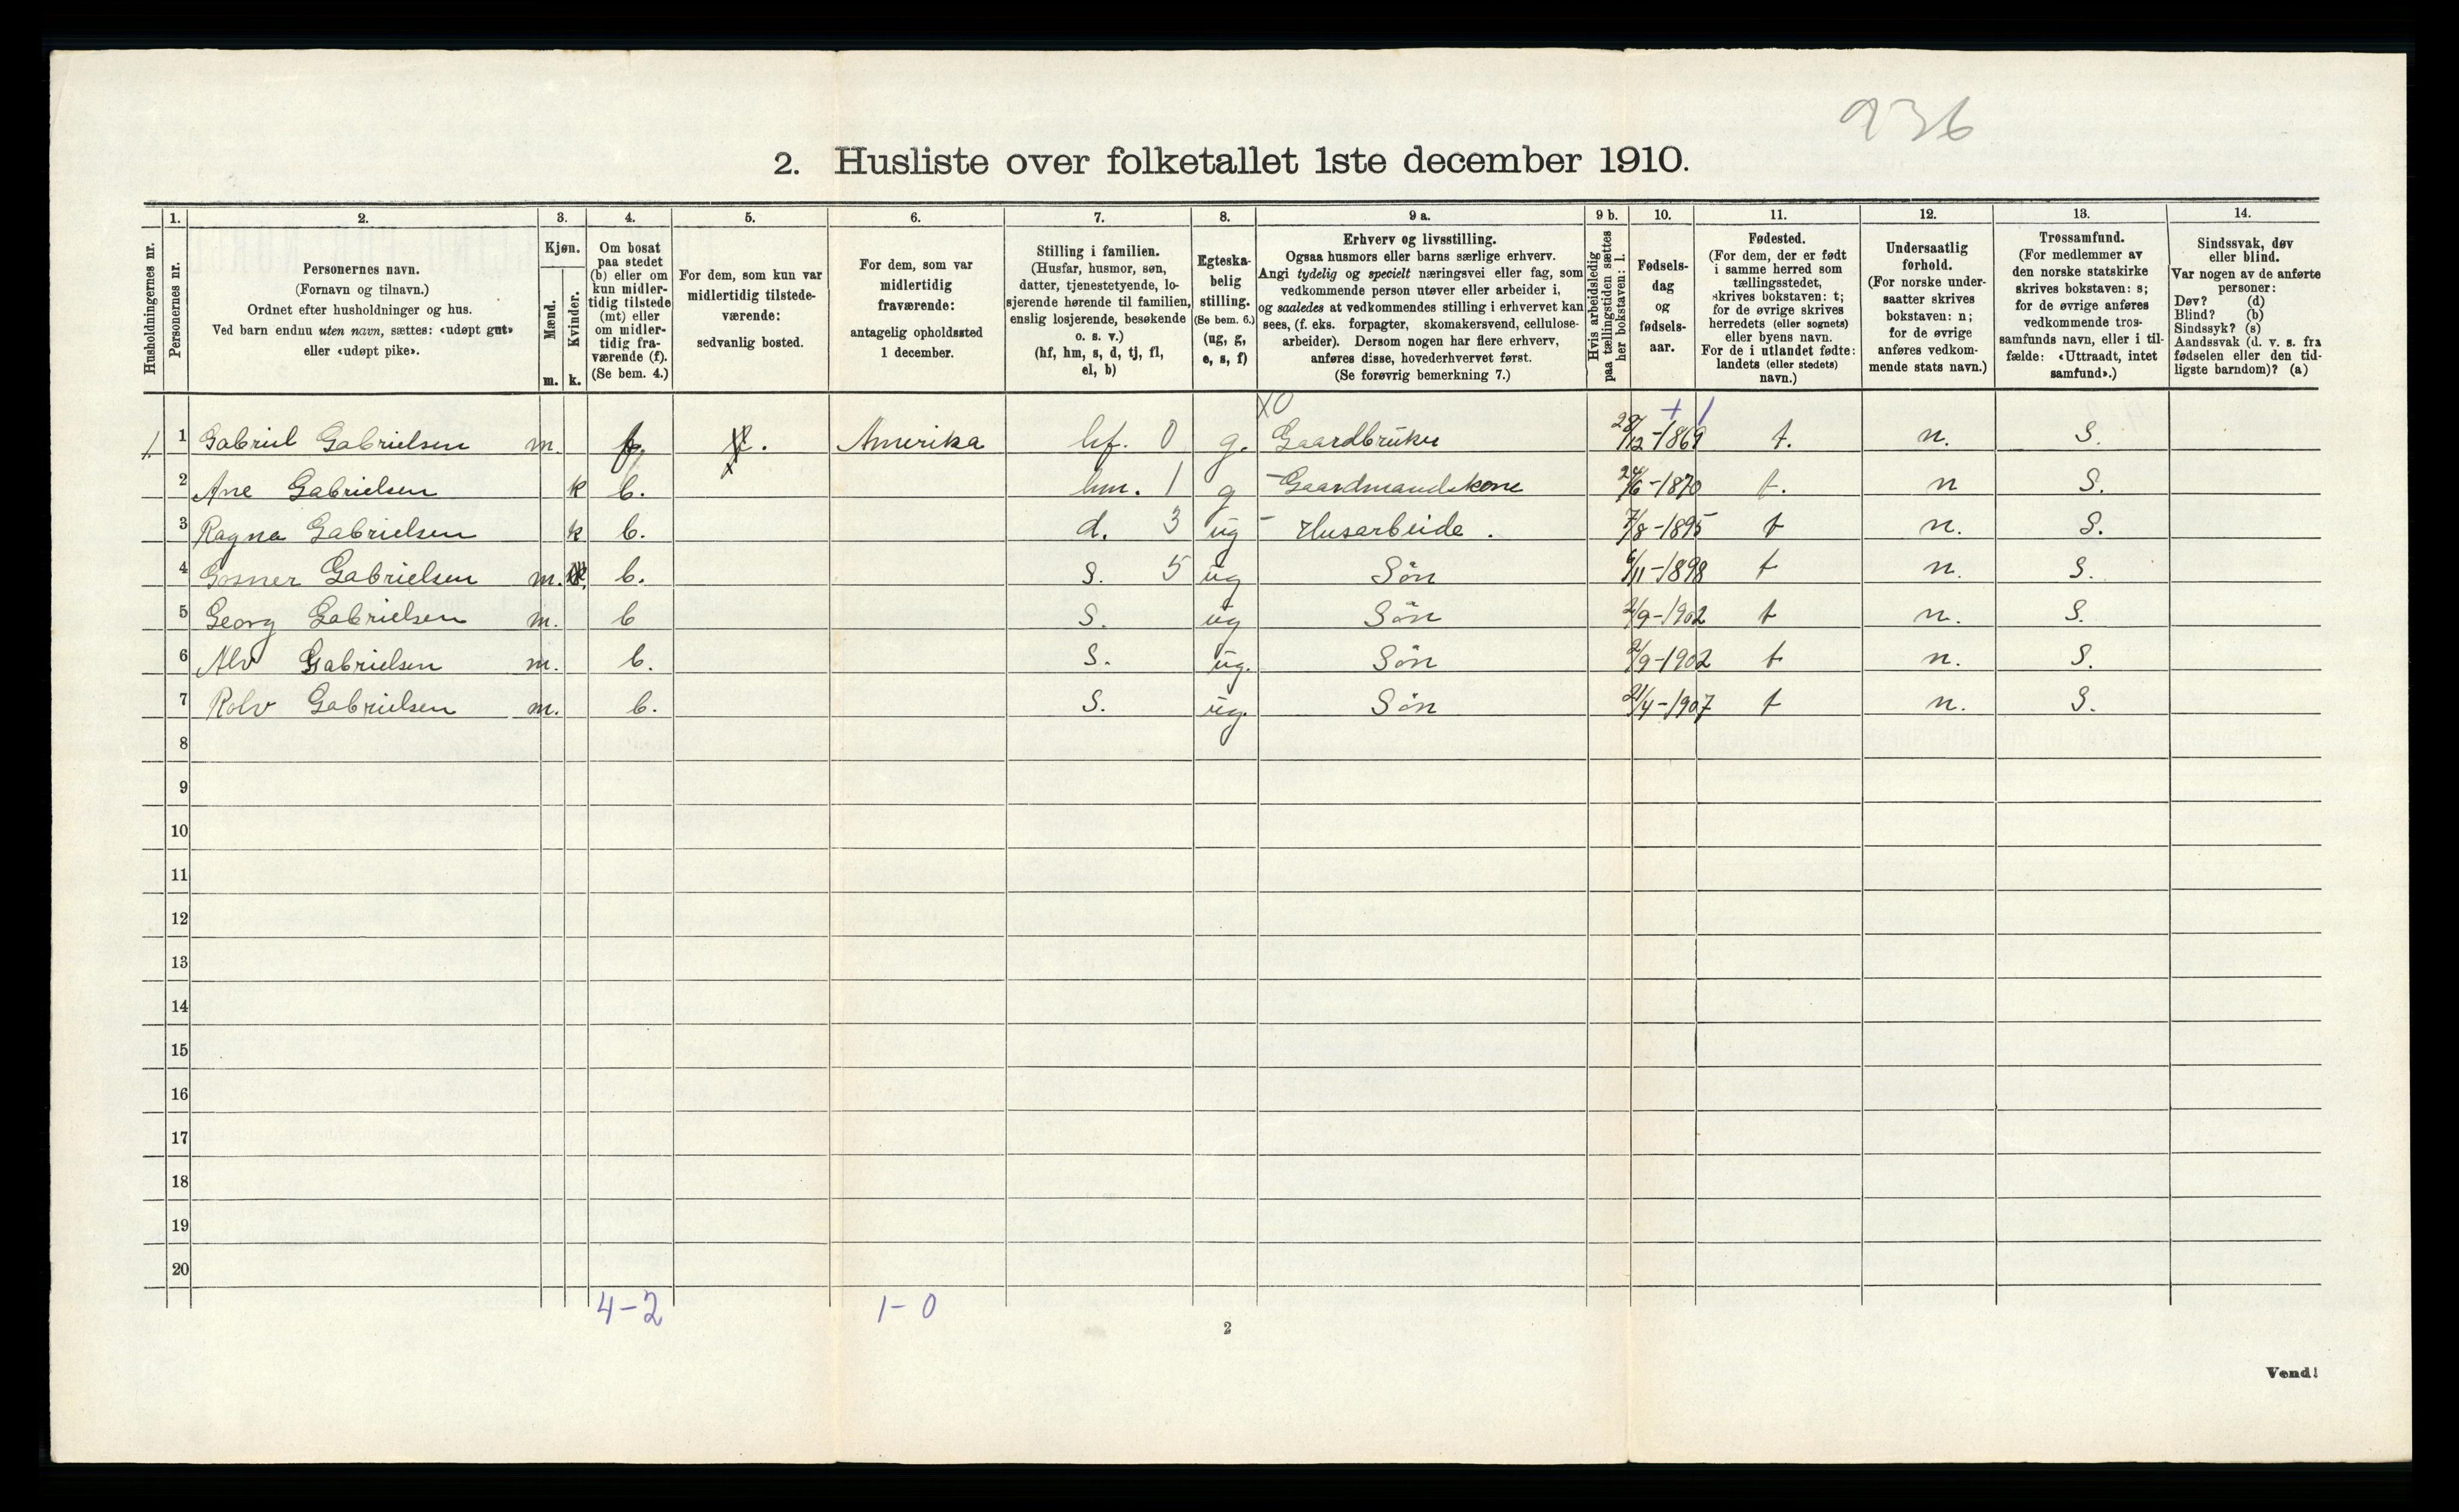 236
2. Husliste over folketallet 1ste december 1910.
Husholdningernes nr.
1. Personernes nr.
2. Personernes navn. (Fornavn og tilnavn.) Ordnet efter husholdninger og hus. Ved barn endnu uten navn, sættes: «udøpt gut» eller «udøpt pike».
3. Kjøn. Mænd. m. Kvinder. k.
4. Om bosat paa stedet (b) eller om kun midlertidig tilstede (mt) eller om midlertidig fraværende (f). (Se bem. 4.)
5. For dem, som kun var midlertidig tilstedeværende: sedvanlig bosted.
6. For dem, som var midlertidig fraværende: antagelig opholdssted 1 december.
7. Stilling i familien. (Husfar, husmor, søn, datter, tjenestetyende, losjerende hørende til familien, enslig losjerende, besøkende o. s. v.) (hf, hm, s, d, tj, fl, el, b)
8. Egteskabelig stilling. (Se bem. 6.) (ug, g, e, s, f)
9 a. Erhverv og livsstilling. Ogsaa husmors eller barns særlige erhverv. Angi tydelig og specielt næringsvei eller fag, som vedkommende person utøver eller arbeider i, og saaledes at vedkommendes stilling i erhvervet kan sees, (f. eks. forpagter, skomakersvend, cellulosearbeider). Dersom nogen har flere erhverv, anføres disse, hovederhvervet først. (Se forøvrig bemerkning 7.)
9 b. Hvis arbeidsledig paa tællingstiden sættes her bokstaven: l.
10. Fødselsdag og fødselsaar.
11. Fødested. (For dem, der er født i samme herred som tællingsstedet, skrives bokstaven: t; for de øvrige skrives herredets (eller sognets) eller byens navn. For de i utlandet fødte: landets (eller stedets) navn.)
12. Undersaatlig forhold. (For norske undersaatter skrives bokstaven: n; for de øvrige anføres vedkommende stats navn.)
13. Trossamfund. (For medlemmer av den norske statskirke skrives bokstaven: s; for de øvrige anføres vedkommende trossamfunds navn, eller i tilfælde: «Uttraadt, intet samfund».)
14. Sindssvak, døv eller blind. Var nogen av de anførte personer: Døv? (d) Blind? (b) Sindssyk? (s) Aandssvak (d. v. s. fra fødselen eller den tidligste barndom)? (a)
X0 + 1
1 1 Gabriel Gabrielsen m. f. Amerika hf. 0 g. Gaardbruker 28/12-1869 t. n. S.
2 Ane Gabrielsen k b. hm. 1 g - Gaardmandskone 24/6-1870 t. n S.
3 Ragna Gabrielsen k b. d. 3 ug - Husarbeide. 7/8-1895 t n. S.
4 Gosner Gabrielsen m. b. S. 5 ug Søn 6/11-1898 t n. S.
5 Georg Gabrielsen m. b S. ug Søn 2/9-1902 t n. S.
6 Alv Gabrielsen m. b. S. ug. Søn 2/9-1902 t n. S.
7 Rolv Gabrielsen m. b. S. ug. Søn 21/4-1907 t n. S.
8
9
10
11
12
13
14
15
16
17
18
19
20
4-2 1-0
2
Vend!